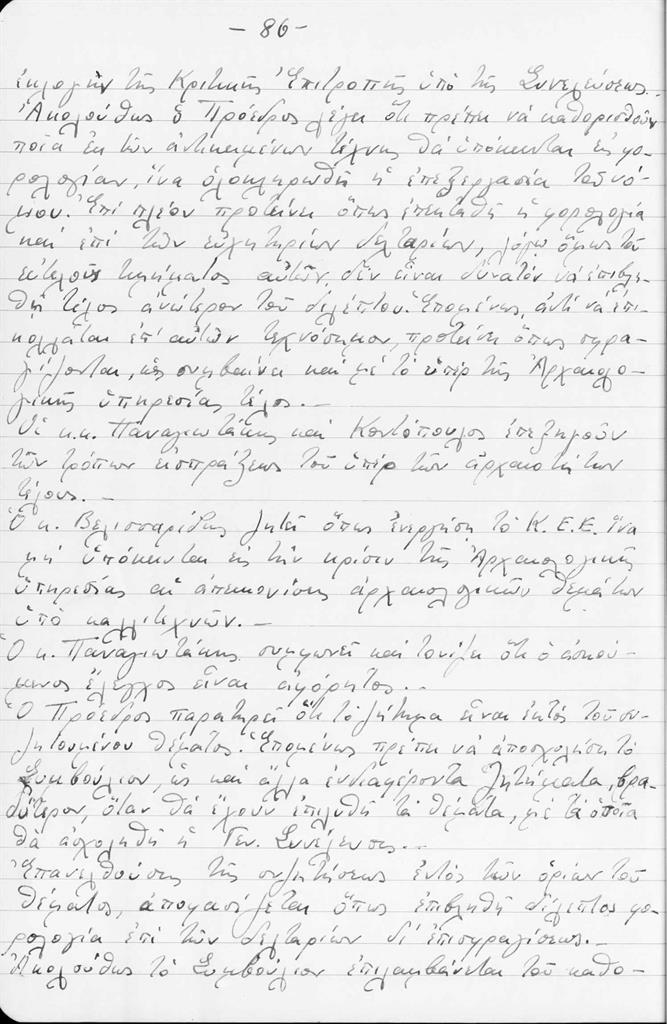 - 86 -
ἐκλογὴν τῆς Κριτικῆς Ἐπιτροπῆς ὑπὸ τῆς Συνελεύσεως.-
Ἀκολούθως ὁ Πρόεδρος λέγει ὅτι πρέπει νὰ καθορισθοῦν
ποῖα ἐκ τῶν ἀντικειμένων τέχνης θὰ ὑπόκεινται εἰς φο-
ρολογίαν, ἵνα ὁλοκληρωθῇ ἡ ἐπεξεργασία τοῦ νό-
μου. Ἐπὶ πλέον προτείνει ὅπως ἐπεκταθῇ ἡ φορολογία
καὶ ἐπὶ τῶν εὐχητηρίων δελταρίων, λόγῳ ὅμως τοῦ
εὐτελοῦς τιμήματος αὐτῶν δὲν εἶναι δυνατὸν νὰ ἐπιβλη-
θῇ τέλος ἀνώτερον τοῦ διλέπτου. Ἑπομένως, ἀντὶ νὰ ἐπι-
κολλᾶται ἐπ' αὐτῶν τεχνόσημον, προτείνει ὅπως σφρα-
γίζονται, ὡς συμβαίνει καὶ μὲ τὸ ὑπὲρ τῆς Ἀρχαιολο-
γικῆς ὑπηρεσίας τέλος.-
Οἱ κ.κ. Παναγιωτάκης καὶ Κοντόπουλος ἐπεξηγοῦν
τὸν τρόπον εἰσπράξεως τοῦ ὑπὲρ τῶν ἀρχαιοτήτων
τέλους.-
Ὁ κ. Βελισσαρίδης ζητεῖ ὅπως ἐνεργήσῃ τὸ Κ.Ε.Ε. ἵνα
μὴ ὑπόκεινται εἰς τὴν κρίσιν τῆς Ἀρχαιολογικῆς
ὑπηρεσίας αἱ ἀπεικονίσεις ἀρχαιολογικῶν θεμάτων
ὑπὸ καλλιτεχνῶν.-
Ὁ κ. Παναγιωτάκης συμφωνεῖ καὶ τονίζει ὅτι ὁ ἀσκού-
μενος ἔλεγχος εἶναι ἀφόρητος.-
Ὁ Πρόεδρος παρατηρεῖ ὅτι τὸ ζήτημα εἶναι ἐκτὸς τοῦ συ-
ζητουμένου θέματος. Ἑπομένως πρέπει νὰ ἀπασχολήσῃ τὸ
Συμβούλιον, ὡς καὶ ἄλλα ἐνδιαφέροντα ζητήματα, βρα-
δύτερον, ὅταν θὰ ἔχουν ἐπιλυθῆ τὰ θέματα, μὲ τὰ ὁποῖα
θὰ ἀσχοληθῇ ἡ Γεν. Συνέλευσις.-
Ἐπανελθούσης τῆς συζητήσεως ἐντὸς τῶν ὁρίων τοῦ
θέματος, ἀποφασίζεται ὅπως ἐπιβληθῇ δίλεπτος φο-
ρολογία ἐπὶ τῶν δελταρίων δι' ἐπισφραγίσεως.-
Ἀκολούθως τὸ Συμβούλιον ἐπιλαμβάνεται τοῦ καθο-